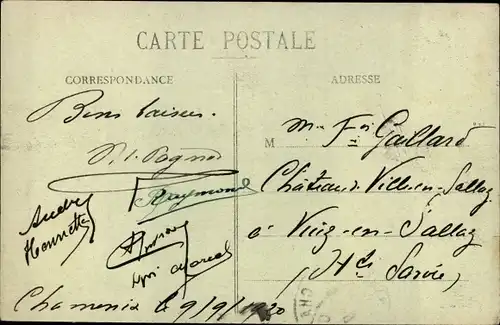 CARTE POSTALE
CORRESPONDANCE
ADRESSE
Bons baisers.
Raymond
André
Henriette
Marcel
Chamonix le 9/9/1920
M Mr Fois Gallard
Château de Ville-en-Sallaz
à Viuz-en-Sallaz
(Hte Savoie)